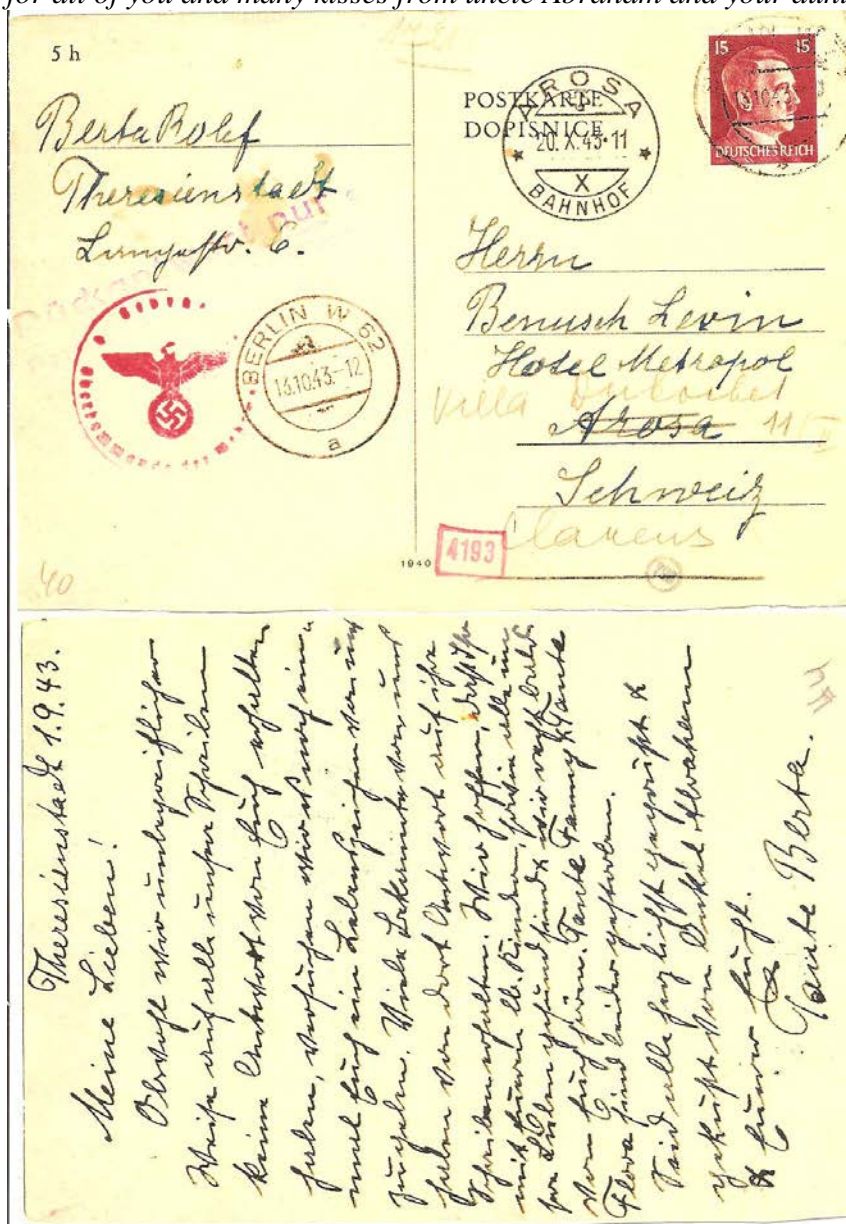 for all of you and many kisses from uncle Abraham and your aunt
5 h
Berta Rolef
Theresienstadt
Langestr. 6.
POSTKARTE
DOPISNICE
15 15
DEUTSCHES REICH
AROSA
20.X.43-11
X
BAHNHOF
13.10.43
Herrn
Benusch Levin
Hotel Metropol
Villa
Arosa 11
Schweiz
Clarens
BERLIN W 62
13.10.43.-12
a
Oberkommando der
4193
1940
40
Theresienstadt 1.9.43.
Meine Lieben!
Obwohl wir unbegreiflicher
Weise auf alle unsre Schreiben
keine Antwort von Euch erhalten
haben, versuchen wir es noch ein-
mal Euch ein Lebenszeichen von uns
zugehen. Viele Bekannte von uns
haben von dort Antwort auf ihr
Schreiben erhalten. Wir hoffen, daß Ihr
mit Euern lb. Kindern, alle
gesund sind & wir recht bald
von Euch hören. Tante Fanny & Tante
Flora sind leider gestorben.
Seid alle herzlichst gegrüßt &
geküßt von Onkel Abraham
& Eurer
Tante Berta.
44